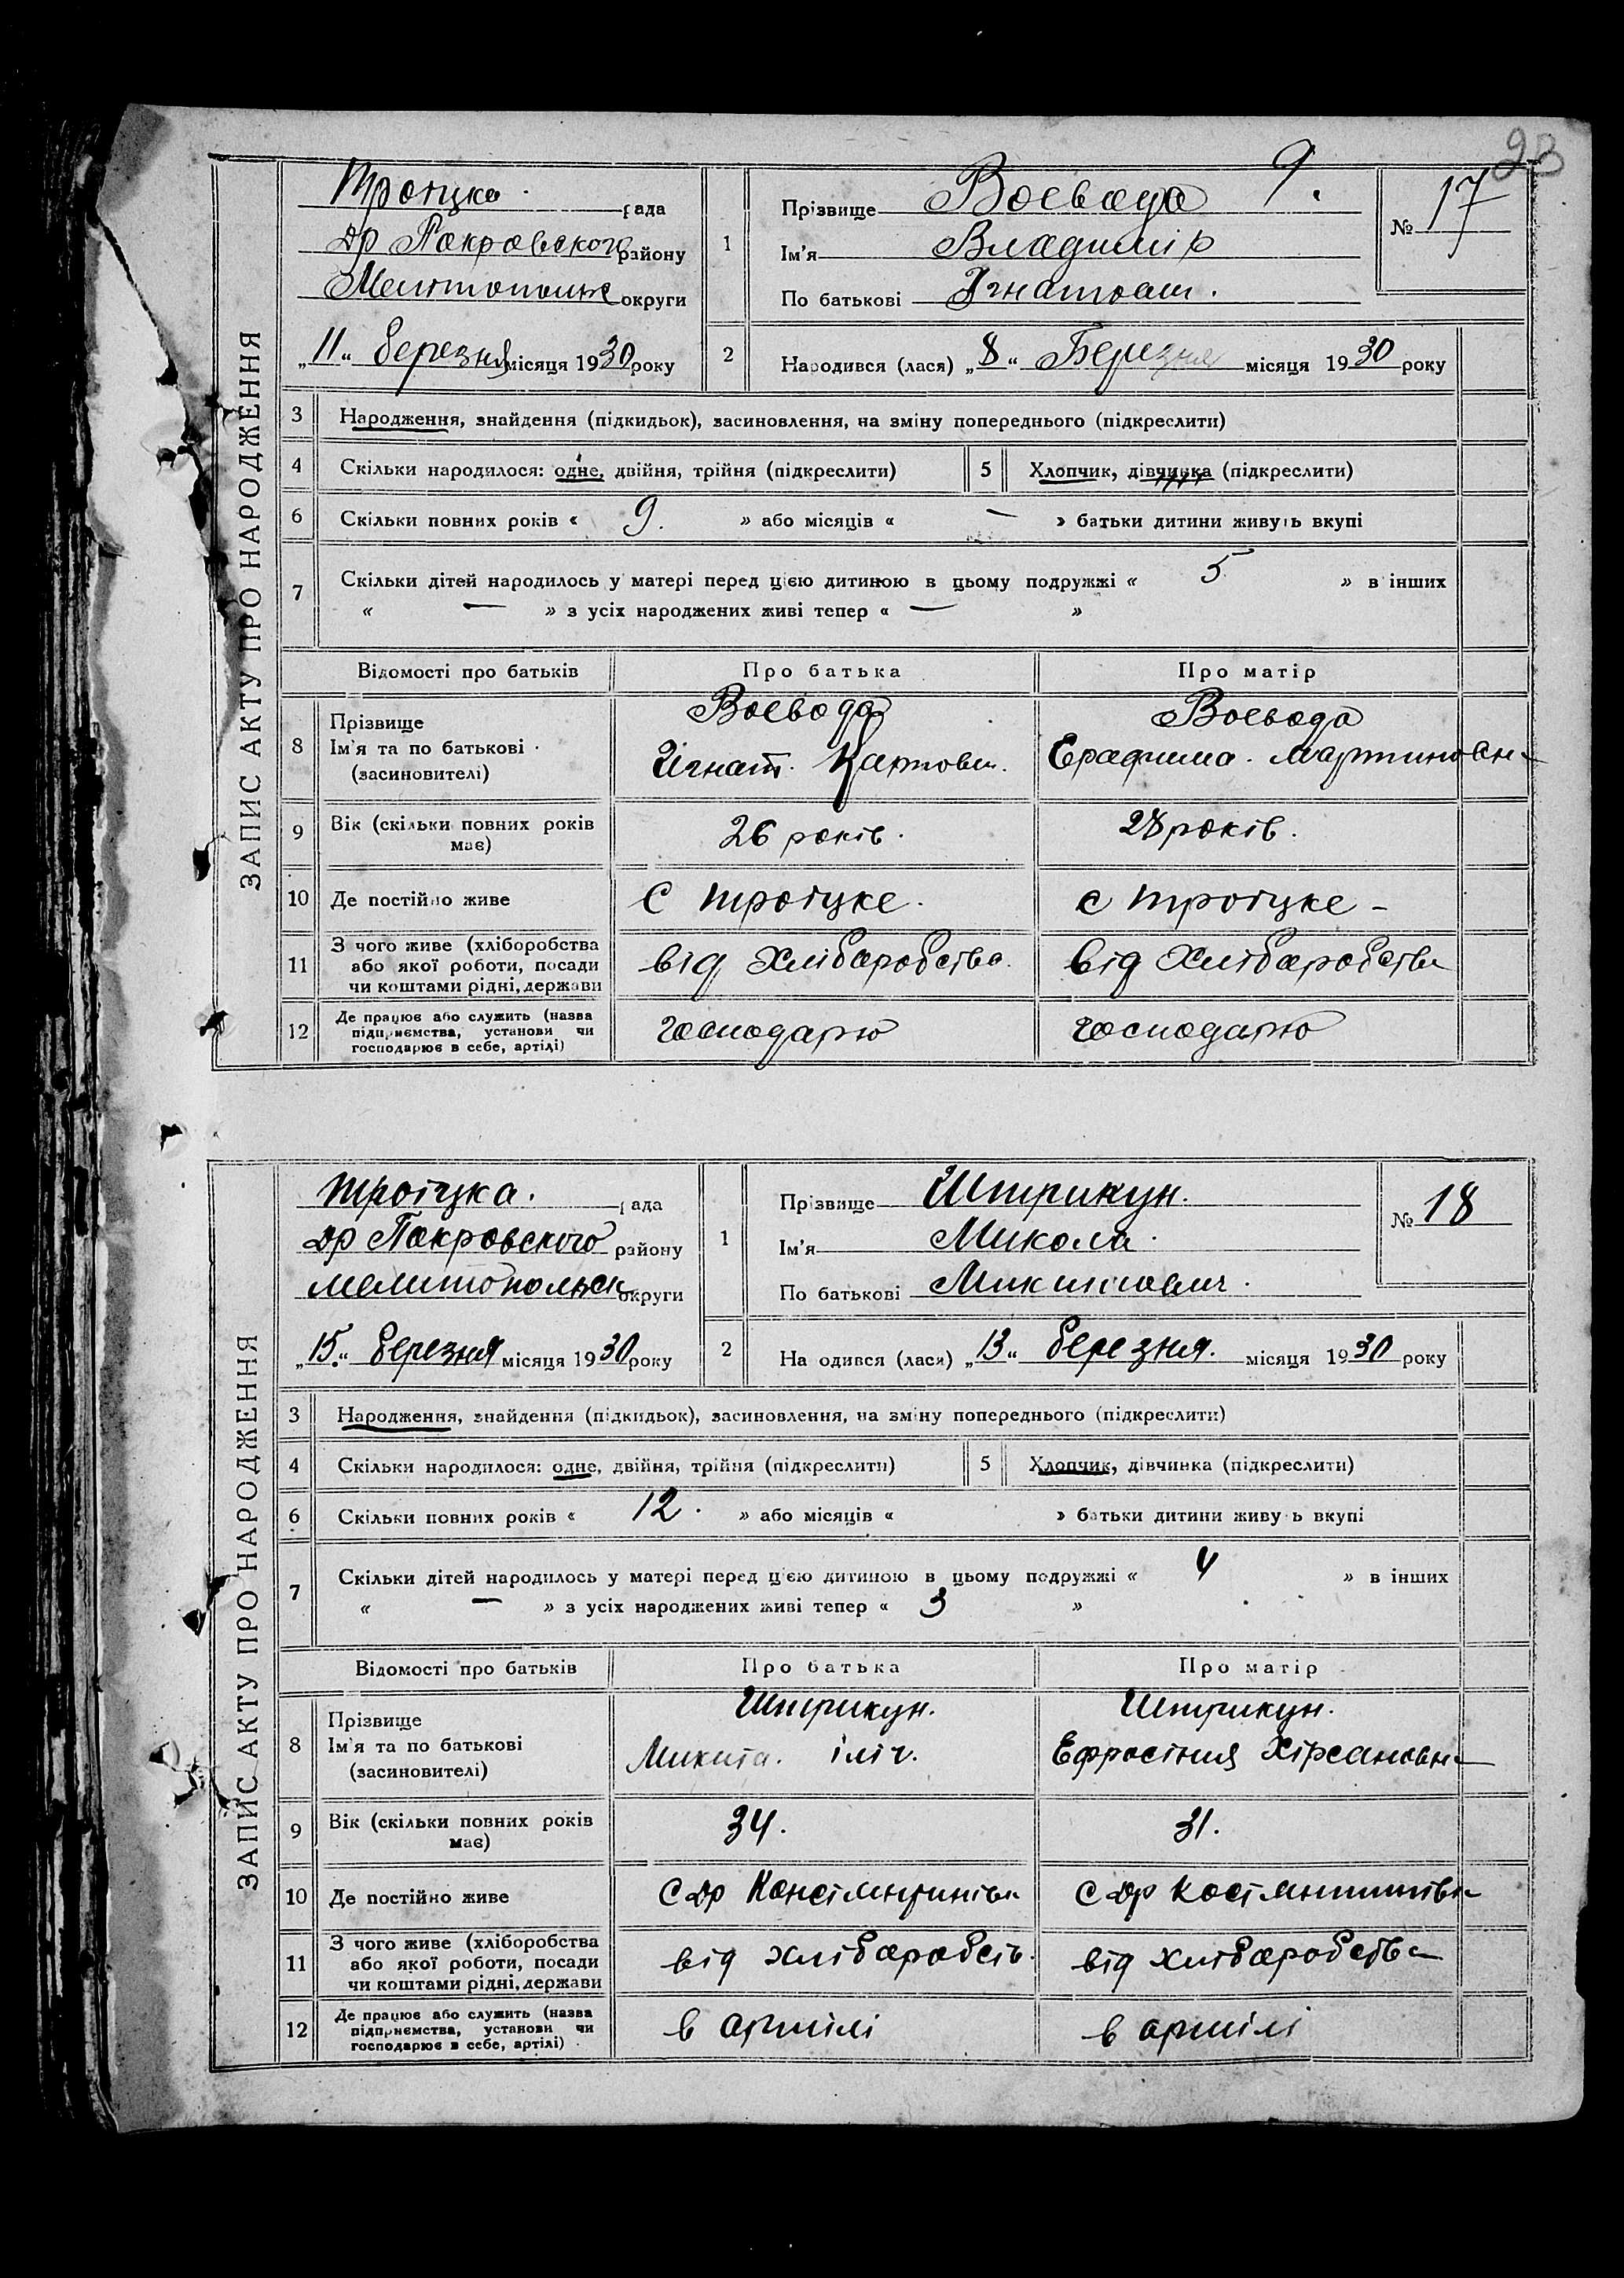 23
ЗАПИС АКТУ ПРО НАРОДЖЕННЯ
Троіцка рада
др Пакровского району
Мелитопольск округи
„11“ березня місяця 1930 року
1
Прізвище Воевада 9.
Ім'я Владимір
По батькові Ігнатович.
№ 17
2
Народився (лася) „8“ Березня місяця 1930 року
3 Народження, знайдення (підкидьок), засиновлення, на зміну попереднього (підкреслити)
4 Скільки народилося: одне, двійня, трійня (підкреслити) 5 Хлопчик, дівчинка (підкреслити)
6 Скільки повних років « 9. » або місяців « — » батьки дитини живуть вкупі
7 Скільки дітей народилось у матері перед цією дитиною в цьому подружжі « 5 » в інших
« — » з усіх народжених живі тепер « — »
Відомості про батьків Про батька Про матір
8 Прізвище Воевода Воевода
Ім'я та по батькові Игнат. Мартиновн
(засиновителі)
9 Вік (скільки повних років має) 26 років. 28 років.
10 Де постійно живе С троіцке. с троіцке -
11 З чого живе (хліборобства
або якої роботи, посади
чи коштами рідні, держави від Хлібаробства. від Хлібаробства
12 Де працює або служить (назва
підприємства, установи чи
господарює в себе, артілі) господарю господарю
ЗАПИС АКТУ ПРО НАРОДЖЕННЯ
Троіцка. рада
др Пакровского району
мелитопольск округи
„15“ березня місяця 1930 року
1
Прізвище Штрикун.
Ім'я Микола.
По батькові Микитович.
№ 18
2
Народився (лася) „13“ березня. місяця 1930 року
3 Народження, знайдення (підкидьок), засиновлення, на зміну попереднього (підкреслити)
4 Скільки народилося: одне, двійня, трійня (підкреслити) 5 Хлопчик, дівчинка (підкреслити)
6 Скільки повних років « 12. » або місяців « » батьки дитини живуть вкупі
7 Скільки дітей народилось у матері перед цією дитиною в цьому подружжі « 4 » в інших
« — » з усіх народжених живі тепер « 3 »
Відомості про батьків Про батька Про матір
8 Прізвище Штрикун. Штрикун.
Ім'я та по батькові Микита. іліч. Ефросіния Хірсановн
(засиновителі)
9 Вік (скільки повних років має) 34. 31.
10 Де постійно живе С др Констянтинівк с др Костянтинівк
11 З чого живе (хліборобства
або якої роботи, посади
чи коштами рідні, держави від хлібаробств. від хлібаробства
12 Де працює або служить (назва
підприємства, установи чи
господарює в себе, артілі) в артілі в артілі